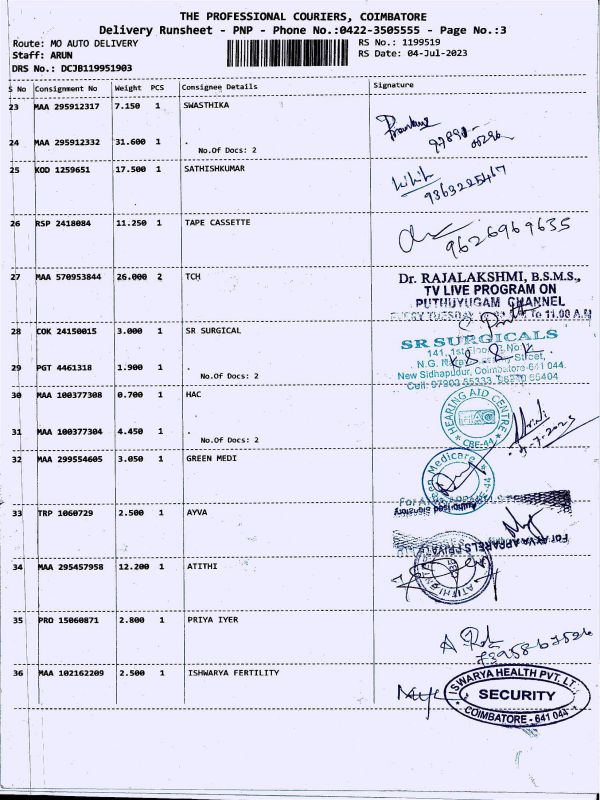 THE PROFESSIONAL COURIERS, COIMBATORE
Delivery Runsheet - PNP - Phone No.:0422-3505555 - Page No.:3
Route: MO AUTO DELIVERY RS No.: 1199519
Staff: ARUN RS Date: 04-Jul-2023
DRS No.: DCJB119951903
S No Consignment No Weight PCS Consignee Details Signature
23 MAA 295912317 7.150 1 SWASTHIKA
24 MAA 295912332 31.600 1 .
No.Of Docs: 2
25 KOD 1259651 17.500 1 SATHISHKUMAR
9363225467
26 RSP 2418084 11.250 1 TAPE CASSETTE
9626969635
27 MAA 570953844 26.000 2 TCH
Dr. RAJALAKSHMI, B.S.M.S.,
TV LIVE PROGRAM ON
PUTHUYUGAM CHANNEL
EVERY TUESDAY To 11.00 A.M
28 COK 24150015 3.000 1 SR SURGICAL
SR SURGICALS
141, 1st Floor
Street,
New Sidhapudur, Coimbatore-641 044.
Cell: 97900 55333
29 PGT 4461318 1.900 1 .
No.Of Docs: 2
30 MAA 100377308 0.700 1 HAC
HEARING AID CENTRE
CBE-44
31 MAA 100377304 4.450 1 .
No.Of Docs: 2
32 MAA 299554605 3.050 1 GREEN MEDI
Green Medicare
33 TRP 1060729 2.500 1 AYVA
For AYVA APPARELS PRIVATE
34 MAA 295457958 12.200 1 ATITHI
ATITHI
35 PRO 15060871 2.800 1 PRIYA IYER
36 MAA 102162209 2.500 1 ISHWARYA FERTILITY
ISWARYA HEALTH PVT. LT
SECURITY
COIMBATORE - 641 044